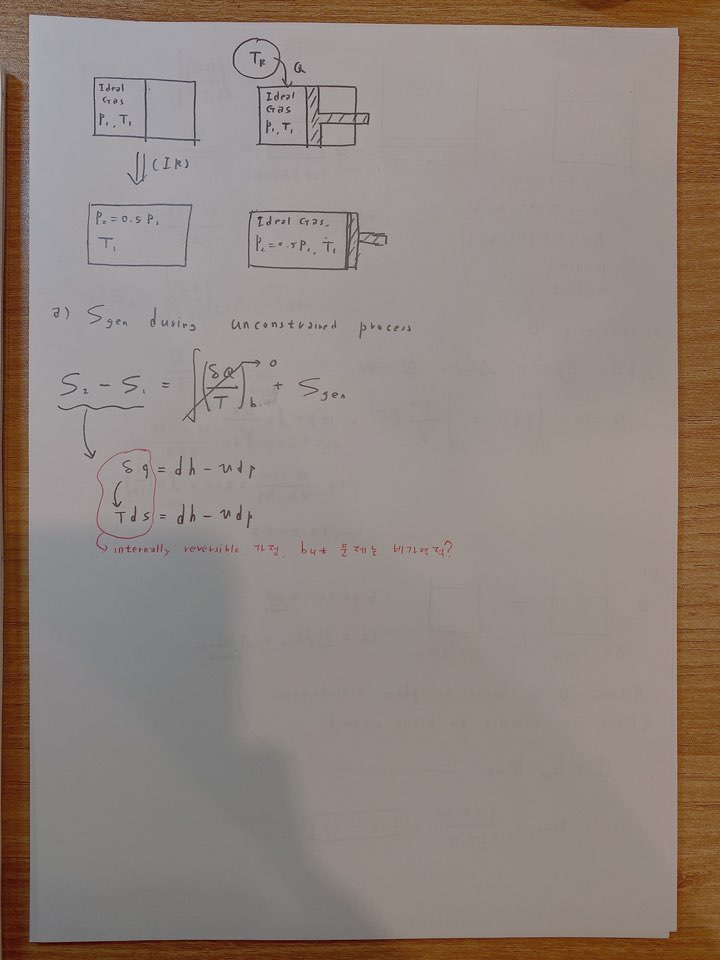 T_R
Q
Ideal
Gas
P₁, T₁
Ideal
Gas
P₁, T₁
(IR)
P₂ = 0.5 P₁
T₁
Ideal Gas,
P₂ = 0.5 P₁, T₁
a) S_gen during unconstrained process
S₂ - S₁ = ∫(δQ/T)_b. → 0 + S_gen
δq = dh - vdp
Tds = dh - vdp
internally reversible 가정, but 문제는 비가역적?